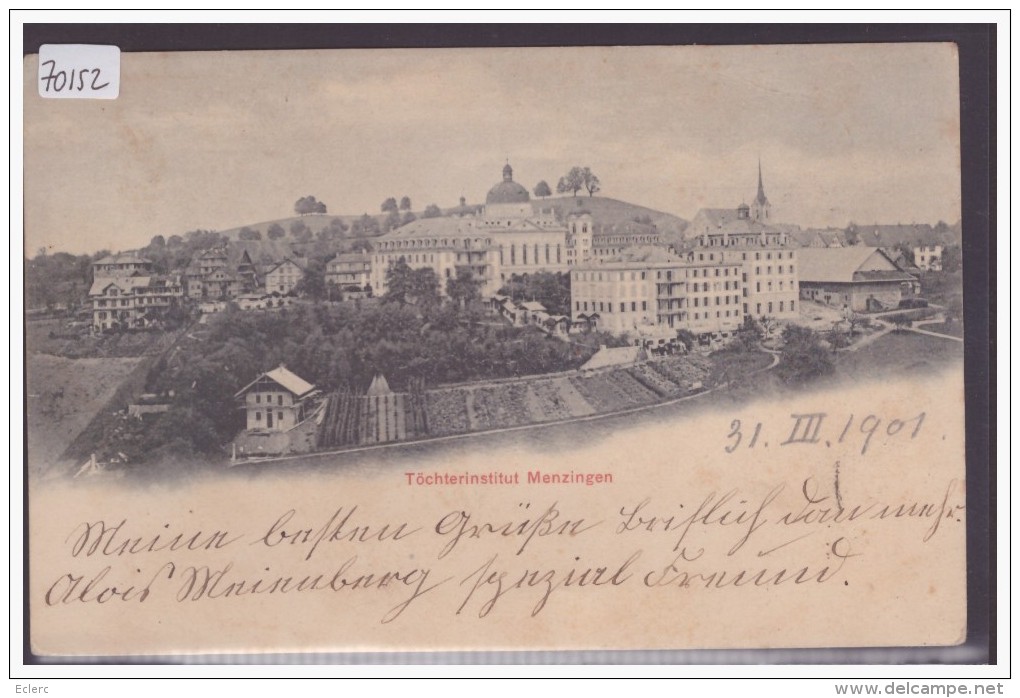 70152
31. III. 1901.
Töchterinstitut Menzingen
Meine besten Grüße Brieflich dan mehr.
Alois Meienberg spezial Freund.
Eclerc
www.delcampe.net